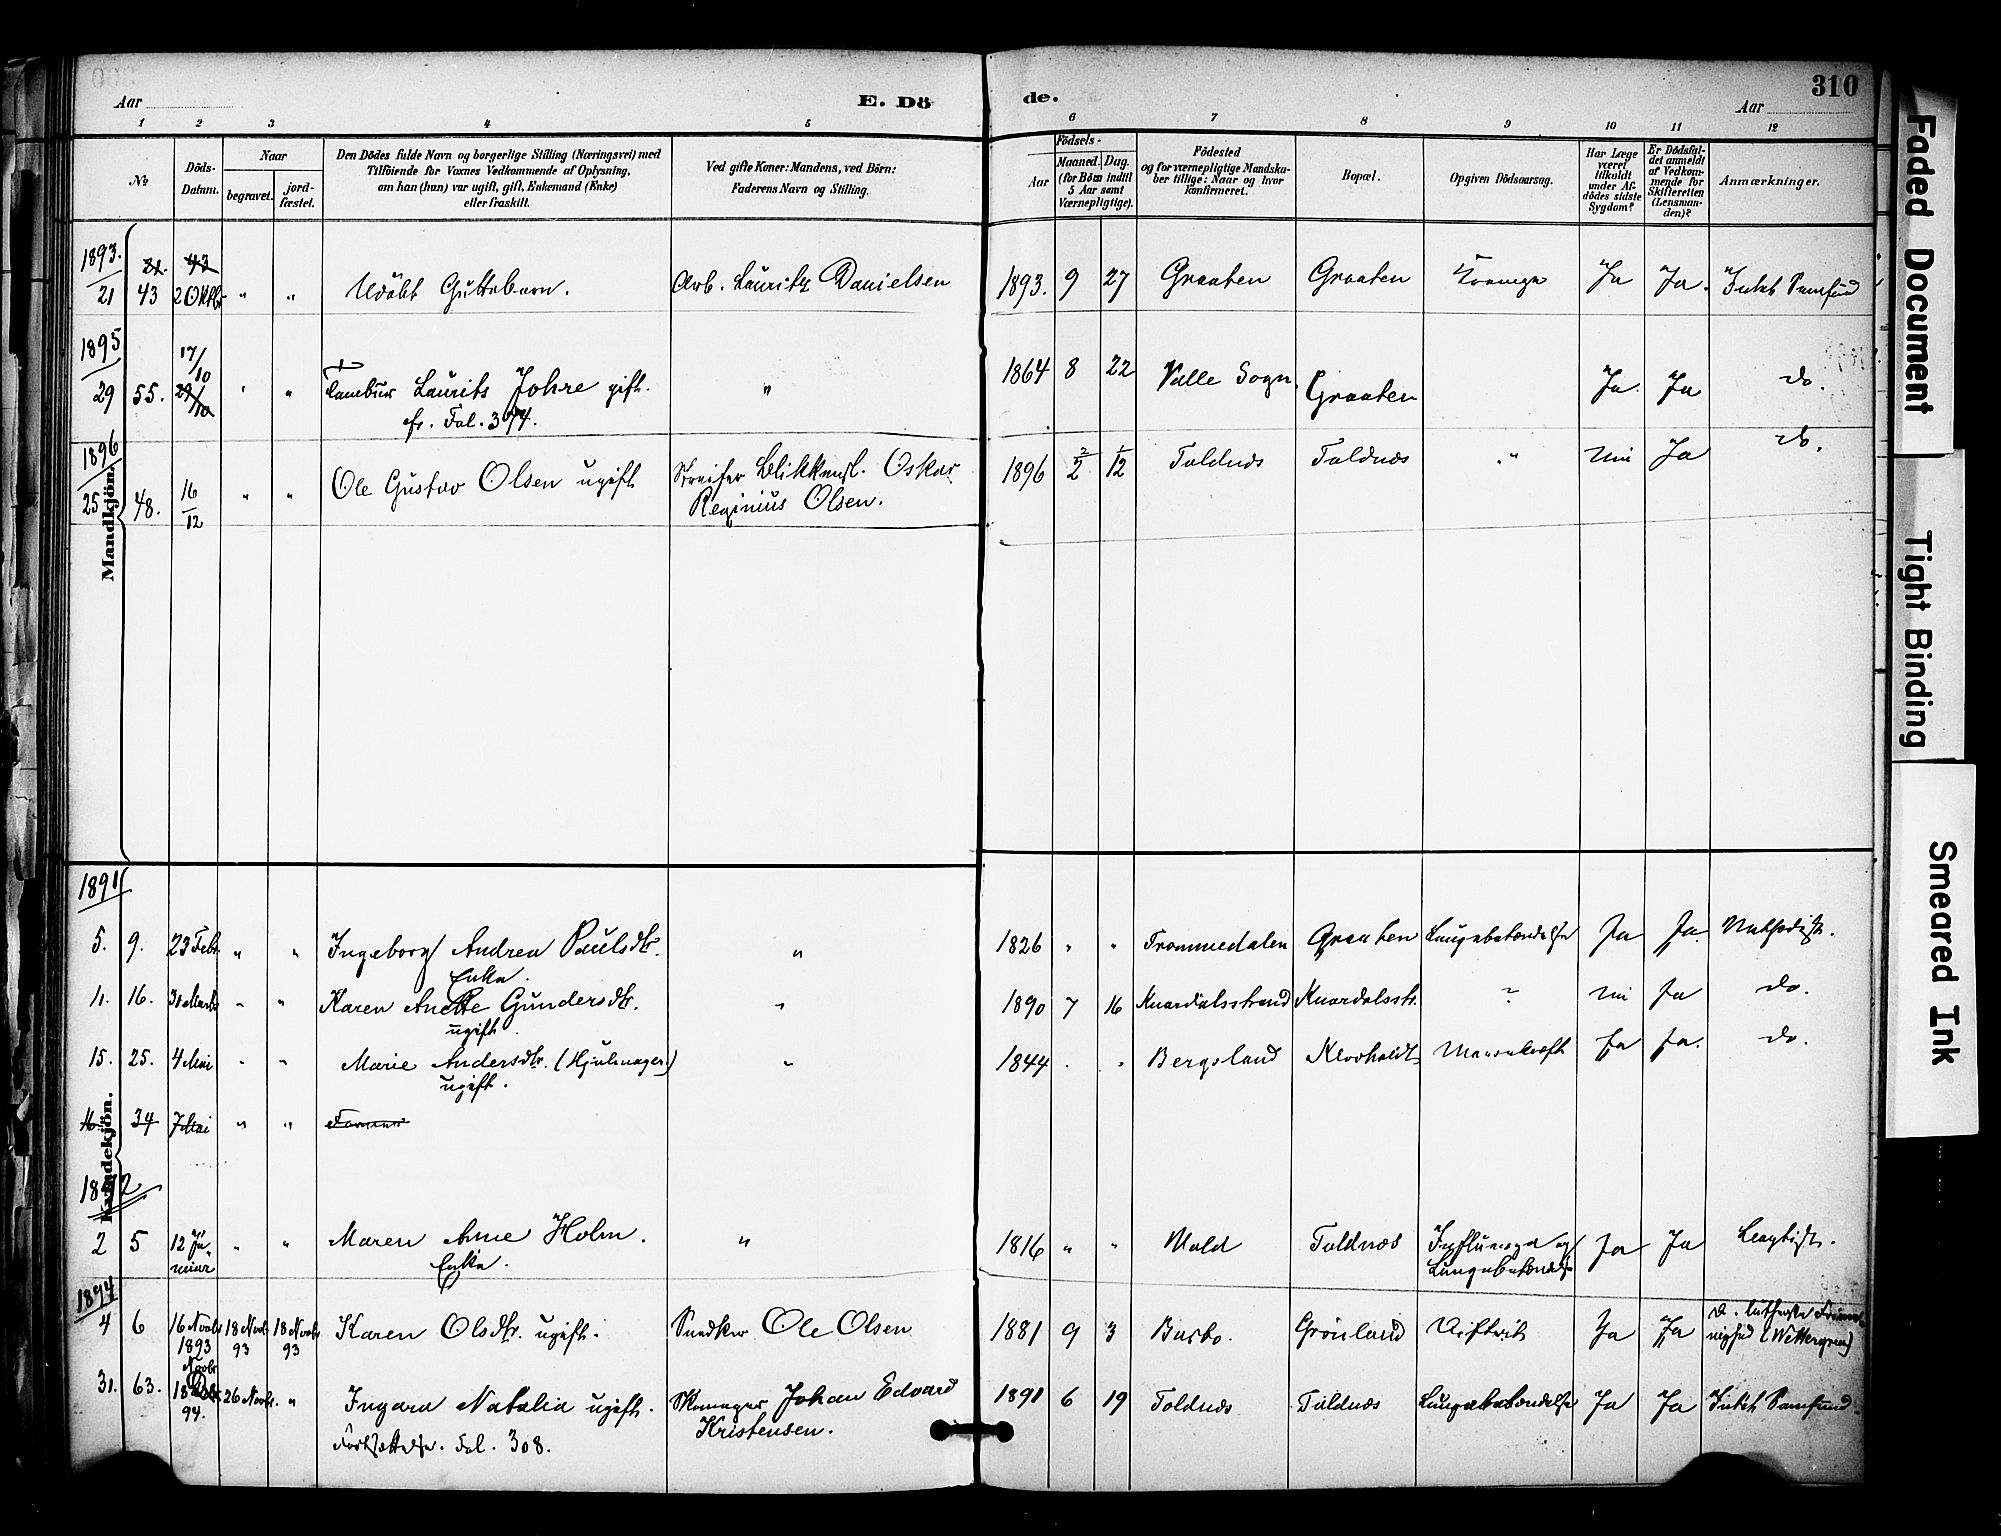 310
Aar
E. Döde.
Aar
1 2 3 4 5 6 7 8 9 10 11 12
No
Döds-Datum.
Naar
begravet.
jord-fæstet.
Den Dödes fulde Navn og borgerlige Stilling (Næringsvei) med
Tilföiende for Voxnes Vedkommende af Oplysning,
om han (hun) var ugift, gift, Enkemand (Enke)
eller fraskilt.
Ved gifte Koner: Mandens, ved Börn:
Faderens Navn og Stilling.
Födsels-
Aar
Maaned. Dag.
(for Börn indtil
5 Aar samt
Værnepligtige).
Födested
og for værnepligtige Mandska-
ber tillige: Naar og hvor
konfirmeret.
Bopæl.
Opgiven Dödsaarsag.
Har Læge
været
tilkaldt
under Af-
dödes sidste
Sygdom?
Er Dödsfal-
det anmeldt
af Vedkom-
mende for
Skifteretten
(Lensman-
den)?
Anmærkninger.
Mandkjön.
1893.
21 43 2 Oktbr " " Udöbt Guttebarn. Arb. Lauritz Danielsen 1893. 9 27 Graaten Graaten Krampe Ja Ja. Intet Samfund
1895
29 55. 17/10 " " Tambur Laurits Johre gift. " 1864 8 22 Valle Sogn. Graaten Ja. Ja do.
cfr. Fol. 374.
1896
25 48. 16/12 " " Ole Gustav Olsen ugift Oskar 1896 2 12 Toldnæs Toldnæs " Nei Ja do.
Reginius Olsen.
Kvindekjön.
1891
5. 9. 23 Febr " " Ingeborg Andrea Paulsdtr. " 1826 " " Trommedalen Graaten Lungebetændelse Ja Ja. Methodist.
Enke.
11. 16. 31 Marts " " Karen Anette Gundersdtr. " 1890 7 16 Knardalsstrand Knardalsstr. ? Nei Ja do.
ugift
15. 25. 4 Mai " " Marie Andersdtr. (Hjulmager) " 1844 " " Bergsland Klovholdt Mavekræft Ja Ja. do.
ugift.
16 34 7 Mai " "
1892
2 5 12 Ja- " " Maren Anne Holm. " 1816 " " Mold Toldnæs Influenza og Ja Ja Baptist.
nuar Enke. Lungebetændelse
1894
4 6 16 Novbr 18 Novbr 18 Novbr Karen Olsdtr. ugift. Snedker Ole Olsen 1881 9 3 Busbo. Grönland Difterit Ja Ja d. lutherske Frime-
1893 93 93 nighed (Wettergren)
31. 63. Novbr 18 26 Novbr. " Ingara Natalia ugift. Skomager Johan Edvard 1891 6 19 Toldnæs Toldnæs Lungebetændelse Ja Ja Intet Samfund.
94. Fortsættelse. Fol. 308. Kristensen.
Faded Document
Tight Binding
Smeared Ink